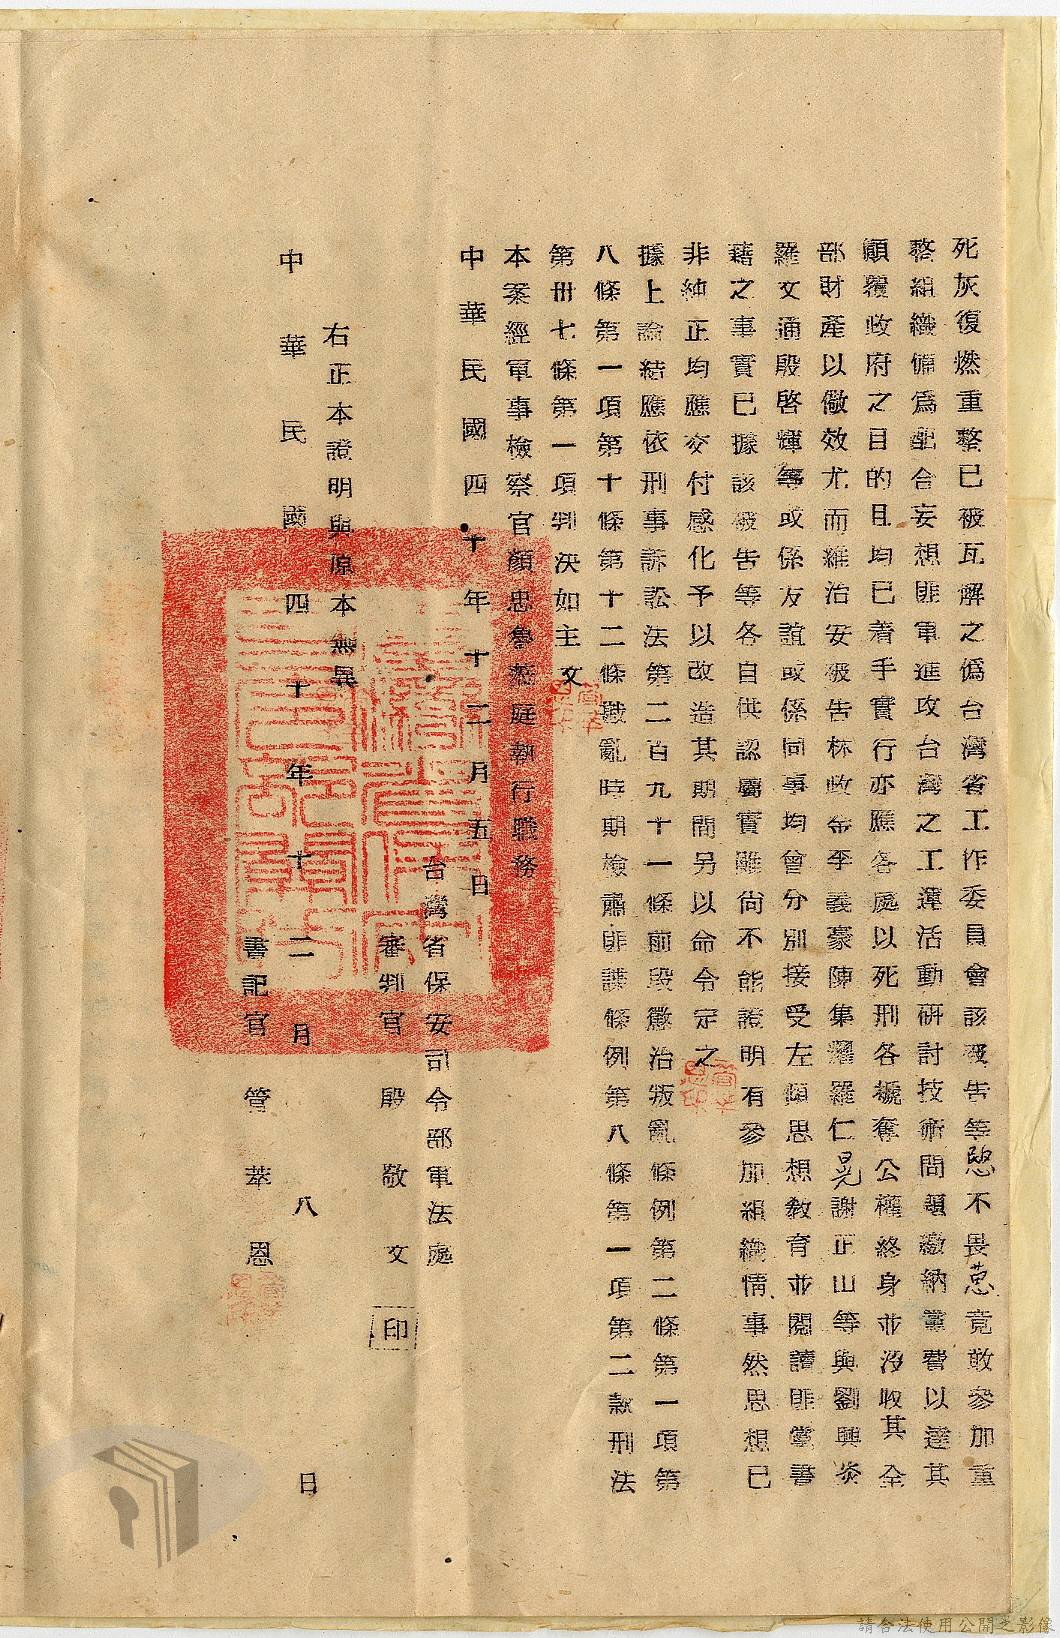 死灰復燃重整已被瓦解之偽台灣省工作委員會該被告等愍不畏葸竟敢參加重
整組織俻為配合妄想匪軍進攻台灣之工運活動研討技術問題繳納黨費以達其
顛覆政府之目的且均已着手實行亦應各處以死刑各褫奪公權終身並沒收其全
部財產以儆效尤而維治安被告林政金李義豪陳集耀羅仁晃謝正山等與劉興炎
羅文通殷啓輝等或係友誼或係同事均曾分別接受左傾思想教育並閱讀匪黨書
籍之事實已據該被告等各自供認屬實雖尚不能證明有參加組織情事然思想已
非純正均應交付感化予以改造其期間另以命令定之
據上論結應依刑事訴訟法第二百九十一條前段懲治叛亂條例第二條第一項第
八條第一項第十條第十二條戡亂時期檢肅匪諜條例第八條第一項第二款刑法
第卅七條第一項判決如主文
本案經軍事檢察官顏忠魯蒞庭執行職務
中華民國四十年十二月五日
台灣省保安司令部軍法處
審判官 殷敬文 印
右正本證明與原本無異
中華民國四十年十二月八日
書記官 管萃恩
請合法使用公開之影像